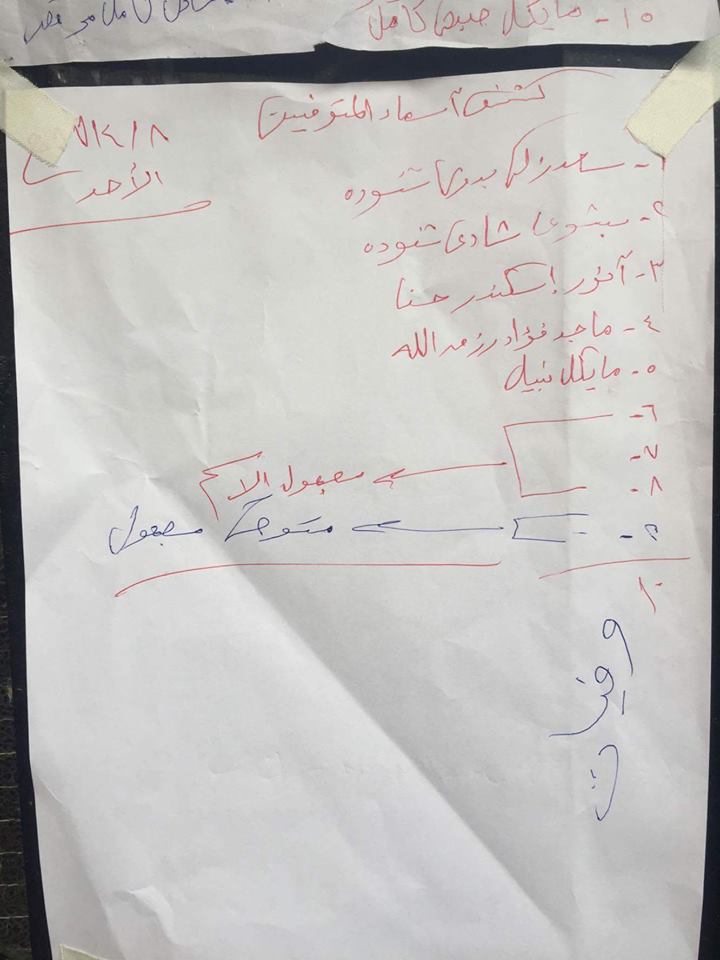 ١٠- مايكل صبحى كامل
كشف أسماء المتوفيين
٨/٤/
الأحد
١- سعد زكى بدوى شنوده
٢- بيشوى شادى شنوده
٣- آنور إسكندر حنا
٤- ماجد فؤاد رزق الله
٥- مايكل نبيل
٦-
٧-
٨-
مجهول الاسم
٩-
متوفى مجهول
١٠
وفيات